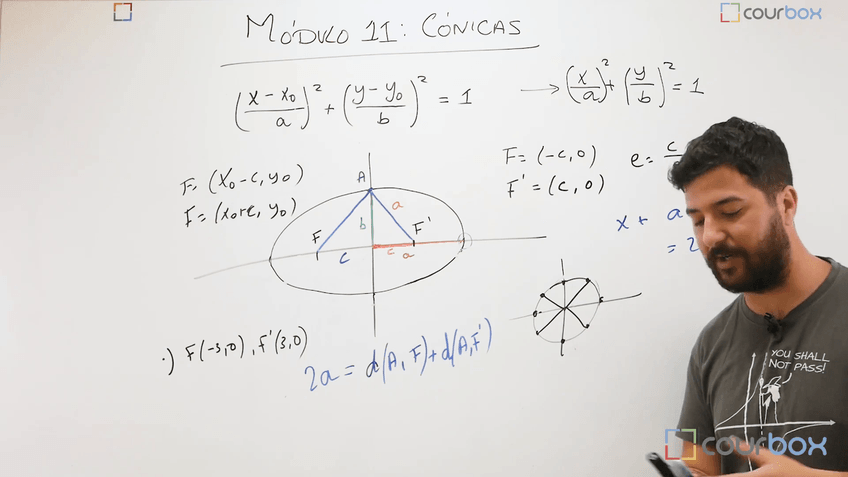 courbox
MÓDULO 11: CÓNICAS
((x - x₀)/a)² + ((y - y₀)/b)² = 1
→ (x/a)² + (y/b)² = 1
F = (x₀ - c, y₀)
F = (x₀ + c, y₀)
F = (-c, 0)
F' = (c, 0)
e = c
x + a
= 2
A
a
b
F
F'
c
c
a
·) F(-3,0), F'(3,0)
2a = d(A, F) + d(A, F')
YOU SHALL
NOT PASS!
courbox